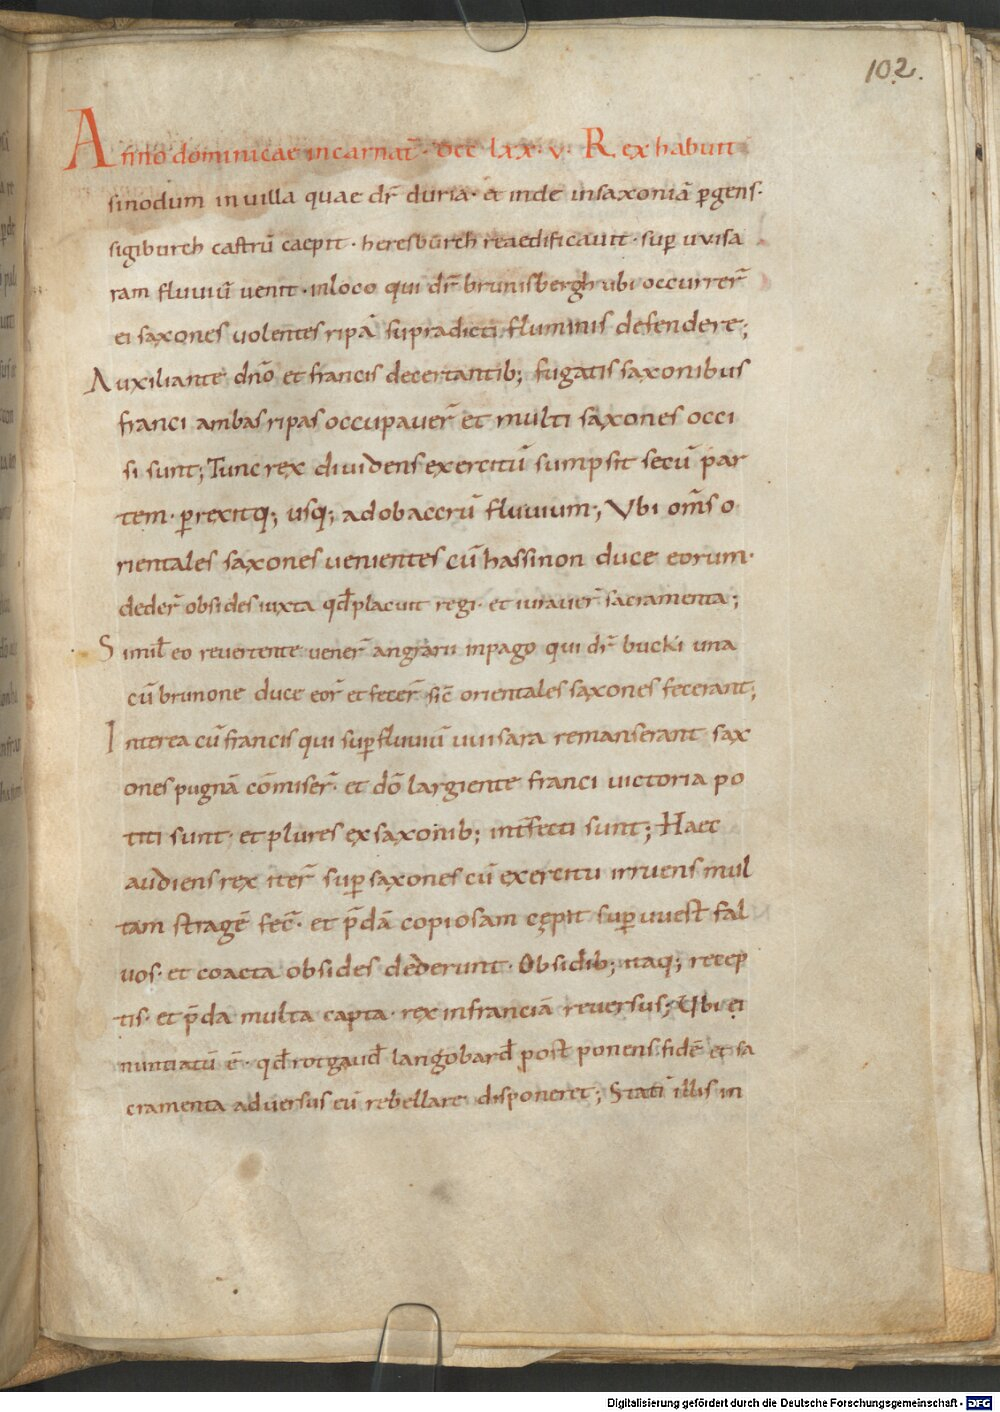 102.
Anno dominicae incarnat̄· dcc lxx·v· Rex habuit
sinodum in uilla quae dr̄ duria· et inde in saxoniā ꝑgens·
sigiburch castrū caepit· heresburch reaedificauit· suꝑ uuisa
ram fluuiū uenit· in loco qui dr̄ brunisbergh ubi occurrer̄
ei saxones uolentes ripā supradicti fluminis defendere;
Auxiliante dn̄o et francis decertantib; fugatis saxonibus
franci ambas ripas occupauer̄ et multi saxones occi
si sunt; Tunc rex diuidens exercitū sumpsit secū par
tem· ꝑrexitq; usq; ad obaccrū fluuium; Vbi om̄s o
rientales saxones uenientes cū hassinon duce eorum·
deder̄ obsides iuxta qđ placuit regi· et iurauer̄ sacramenta;
Simil̄ eo reuertente uener̄ angrarii in pago qui dr̄ bucki una
cū brunone duce eor̄ et fecer̄ sic̄ orientales saxones fecerant;
Interea cū francis qui suꝑ fluuiū uuisara remanserant sax
ones pugnā cōmiser̄· et dō largiente franci uictoria po
titi sunt· et plures ex saxonib; int̄fecti sunt; Haec
audiens rex iter̄ suꝑ saxones cū exercitu irruens mul
tam stragē fec̄· et p̄dā copiosam cępit suꝑ uuest fal
uos· et coacta obsides dederunt· Obsidib; itaq; recep
tis· et p̄da multa capta· rex in franciā reuersus; Vbi ei
nuntiatū ē· qđ rotgauđ langobarđ post ponens fidē et sa
cramenta aduersus eū rebellare disponeret; Stati illis in
Digitalisierung gefördert durch die Deutsche Forschungsgemeinschaft - DFG